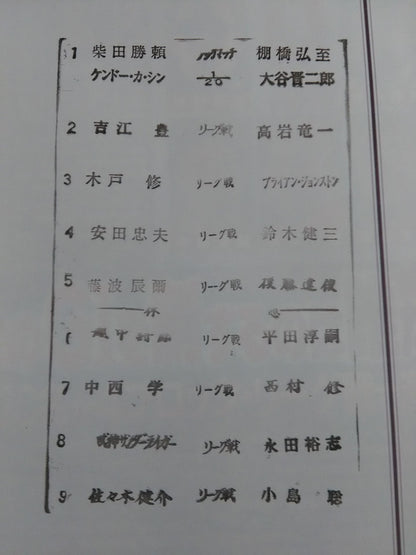 1 柴田勝頼 タッグマッチ 棚橋弘至
ケンドー・カ・シン 1/20 大谷晋二郎
2 吉江 豊 リーグ戦 高岩竜一
3 木戸 修 リーグ戦 ブライアン・ジョンストン
4 安田忠夫 リーグ戦 鈴木健三
5 藤波辰爾 リーグ戦 後藤達俊
休 憩
6 越中詩郎 リーグ戦 平田淳嗣
7 中西 学 リーグ戦 西村 修
8 獣神サンダーライガー リーグ戦 永田裕志
9 佐々木健介 リーグ戦 小島 聡